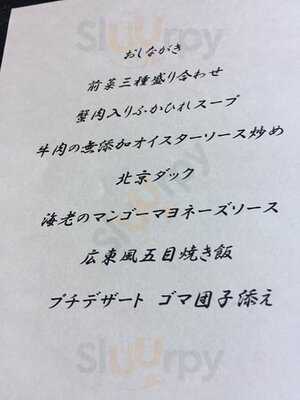 おしながき
前菜三種盛り合わせ
蟹肉入りふかひれスープ
牛肉の無添加オイスターソース炒め
北京ダック
海老のマンゴーマヨネーズソース
広東風五目焼き飯
プチデザート ゴマ団子添え
Sluurpy
Sluurpy
Sluurpy